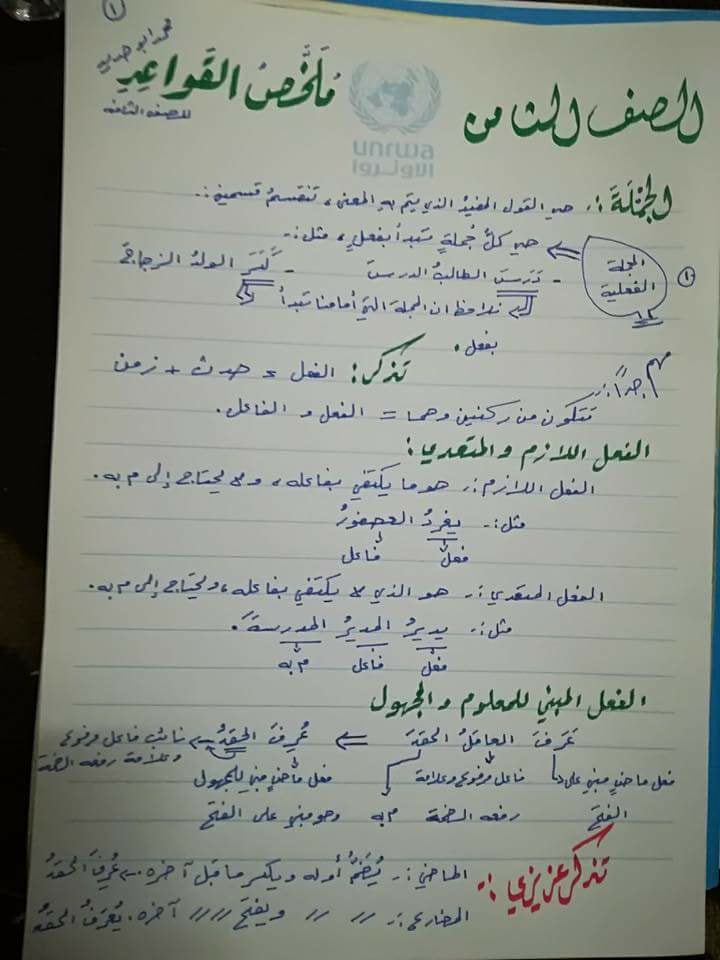 ١
محمد ابو حدايد
الصف الثامن
مُلخَّصُ القَواعِدِ
للصف الثامن
unrwa
الأونروا
الجُمْلَةَ :. هي القول المفيدُ الذي يتم به المعنى، تنقسمُ قسمين :.
١
الجملة الفعلية
هي كلُّ جُملةٍ تبدأ بفعلٍ، مثل :.
- دَرَسَ الطالبُ الدرسَ - كَسَرَ الولدُ الزجاجَ
نلاحظ ان الجملة التي أمامنا تبدأ
بفعل.
تذكر: الفعل = حدث + زمن
مهم جداً :.
تتكون من ركنين وهما = الفعل و الفاعل.
الفعل اللازم والمتعدي:
الفعل اللازم :. هو ما يكتفي بفاعله، ولا يحتاج إلى م به.
مثل :. يغردُ العصفورُ
فعل فاعل
الفعل المتعدي :. هو الذي لا يكتفي بفاعله، ويحتاج إلى م به.
مثل :. يديرُ المديرُ المدرسةَ.
فعل فاعل م به
الفعل المبني للمعلوم والمجهول
عَرَفَ العاقلُ الحقدَ ⇐ عُرِفَ الحقدُ ← نائب فاعل مرفوع
وعلامة رفعه الضمة
فعل ماضٍ مبني على فاعل مرفوع وعلامة فعل ماضٍ مبني للمجهول
الفتح رفعه الضمة م به وهو مبني على الفتح
تذكر عزيزي :.
الماضي :. يُضَمُّ أوله ويكسر ما قبل آخره. ← عُرِفَ الحقدُ
المضارع :. // // ويفتح // // آخره. يُعرَفُ الحقدُ